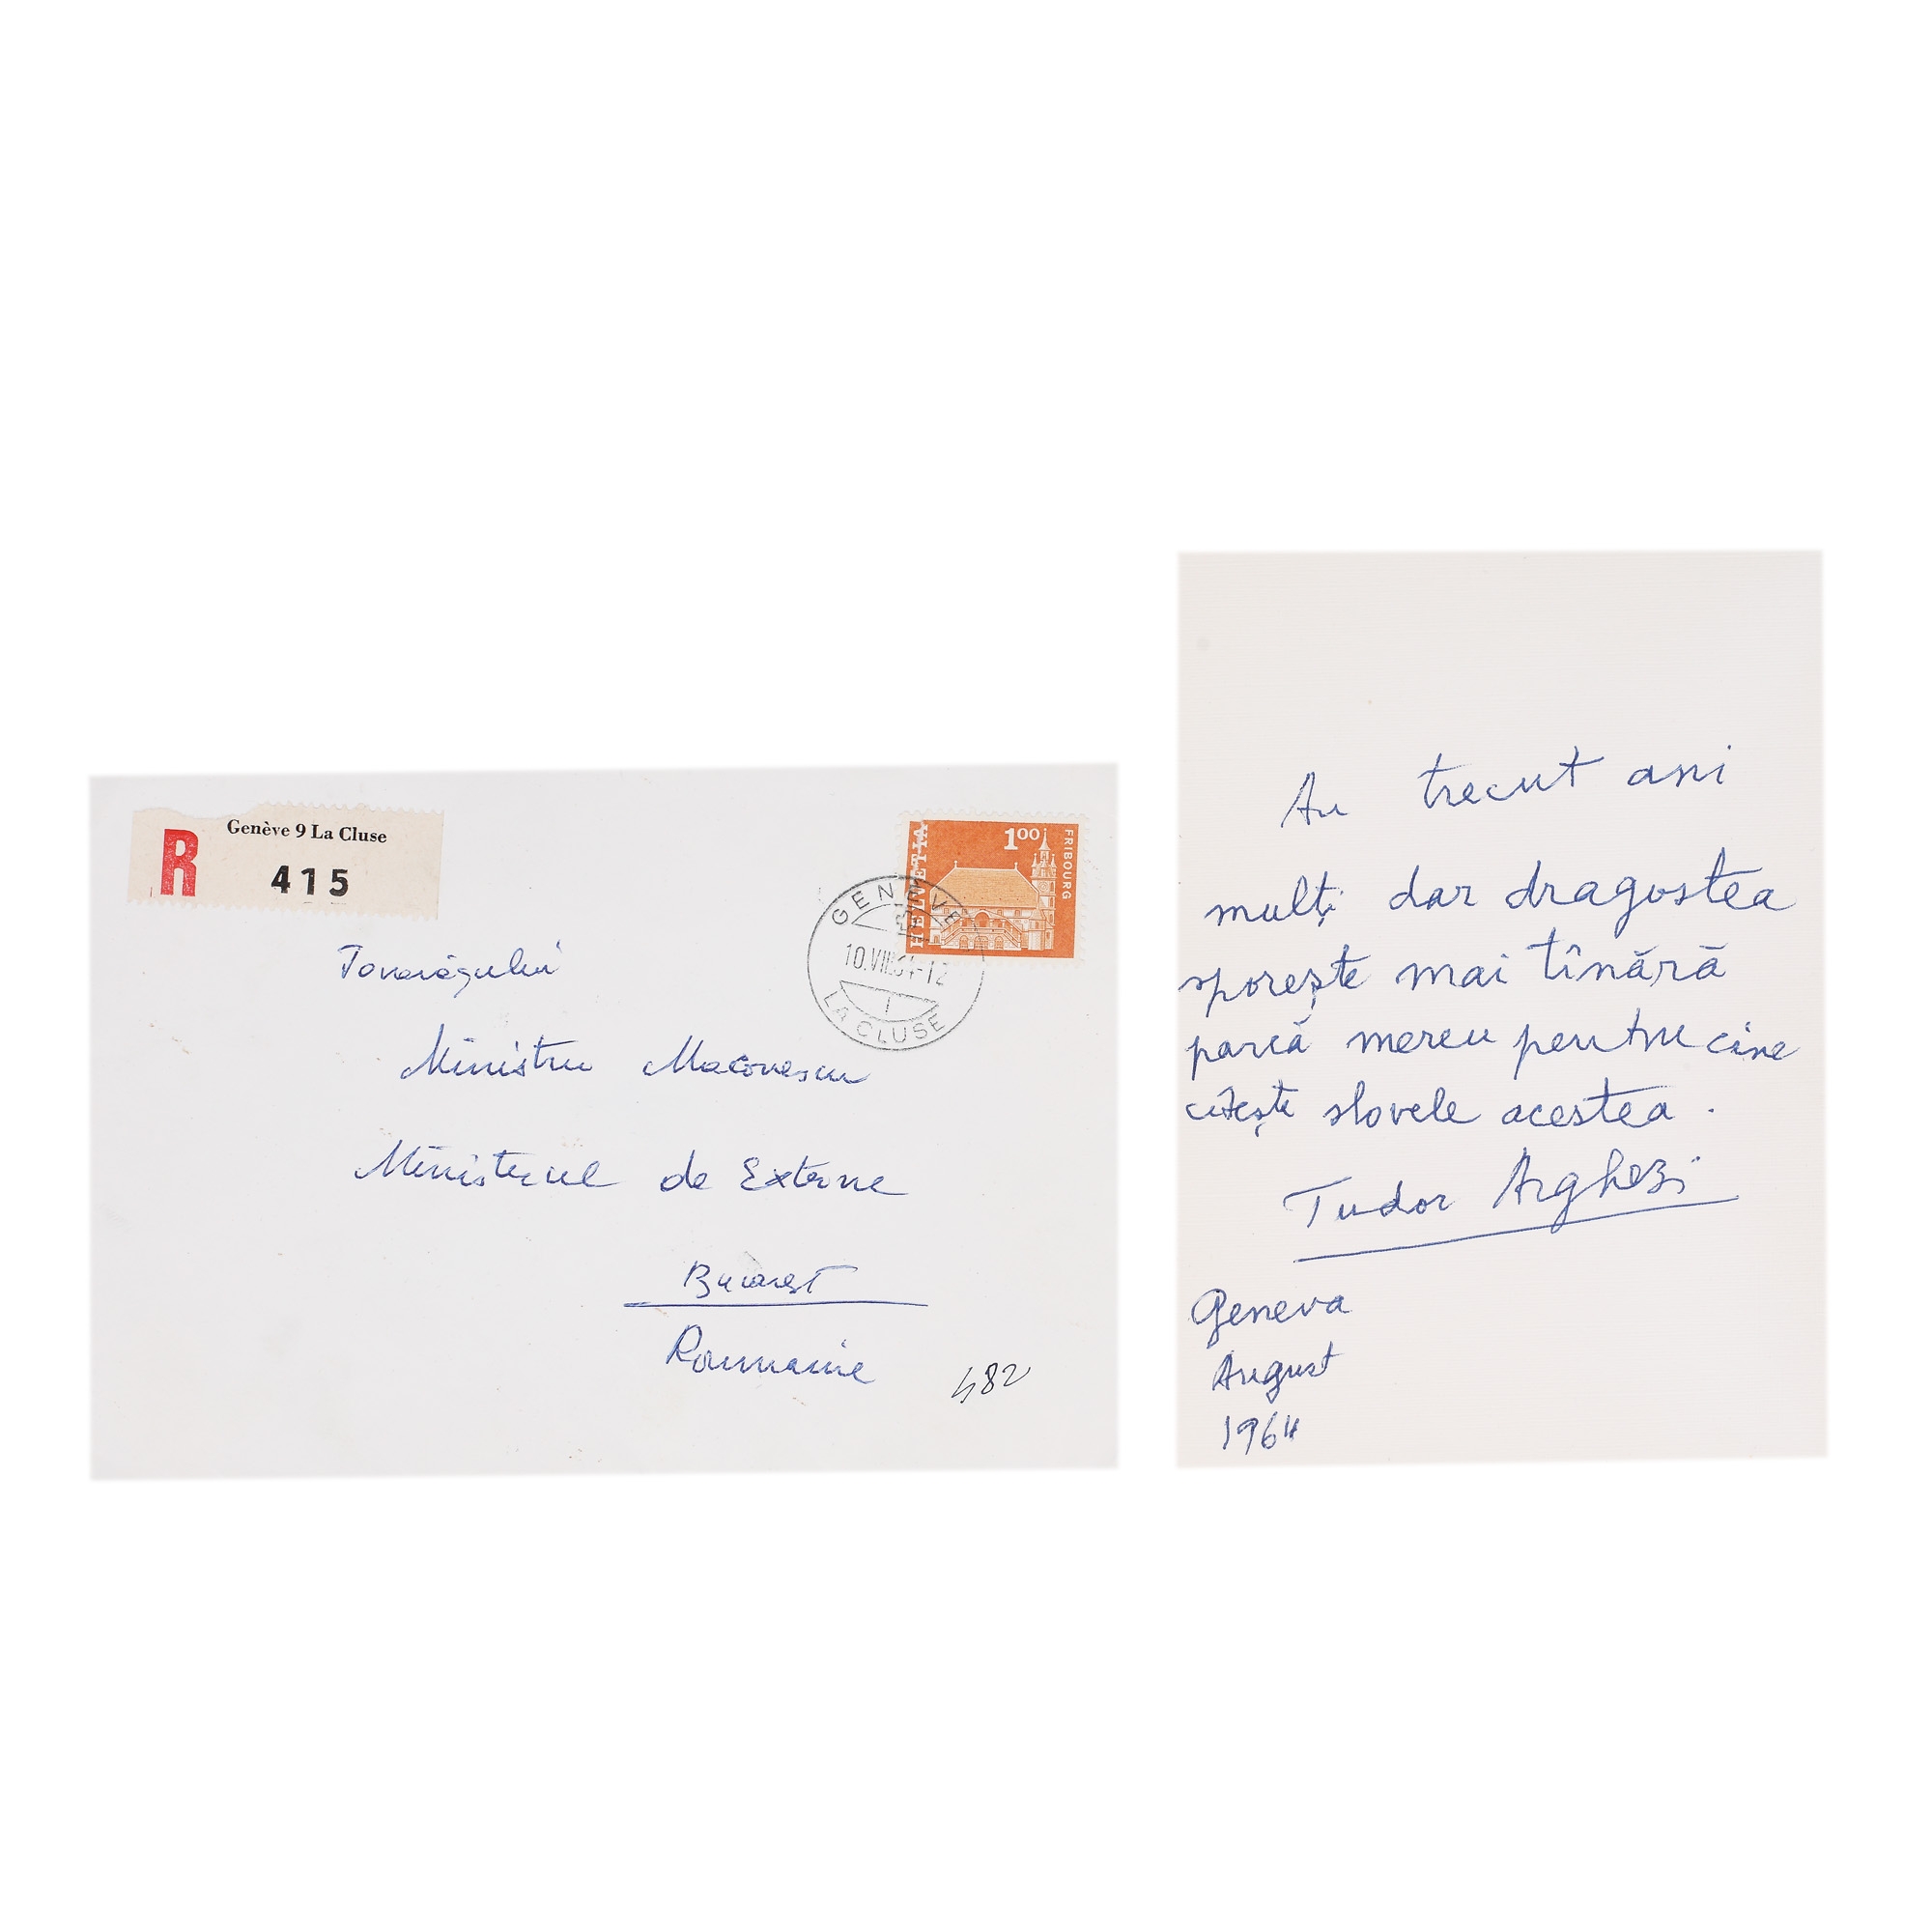 R
Genève 9 La Cluse
415
HELVETIA
1.00
FRIBOURG
GENÈVE
10.VIII.64-12
1
LA CLUSE
Tovarășului
Ministru Macovescu
Ministerul de Externe
Bucarest
Roumanie
482
Au trecut ani
mulți dar dragostea
sporește mai tînără
parcă mereu pentru cine
citește slovele acestea.
Tudor Arghezi
Geneva
August
1964